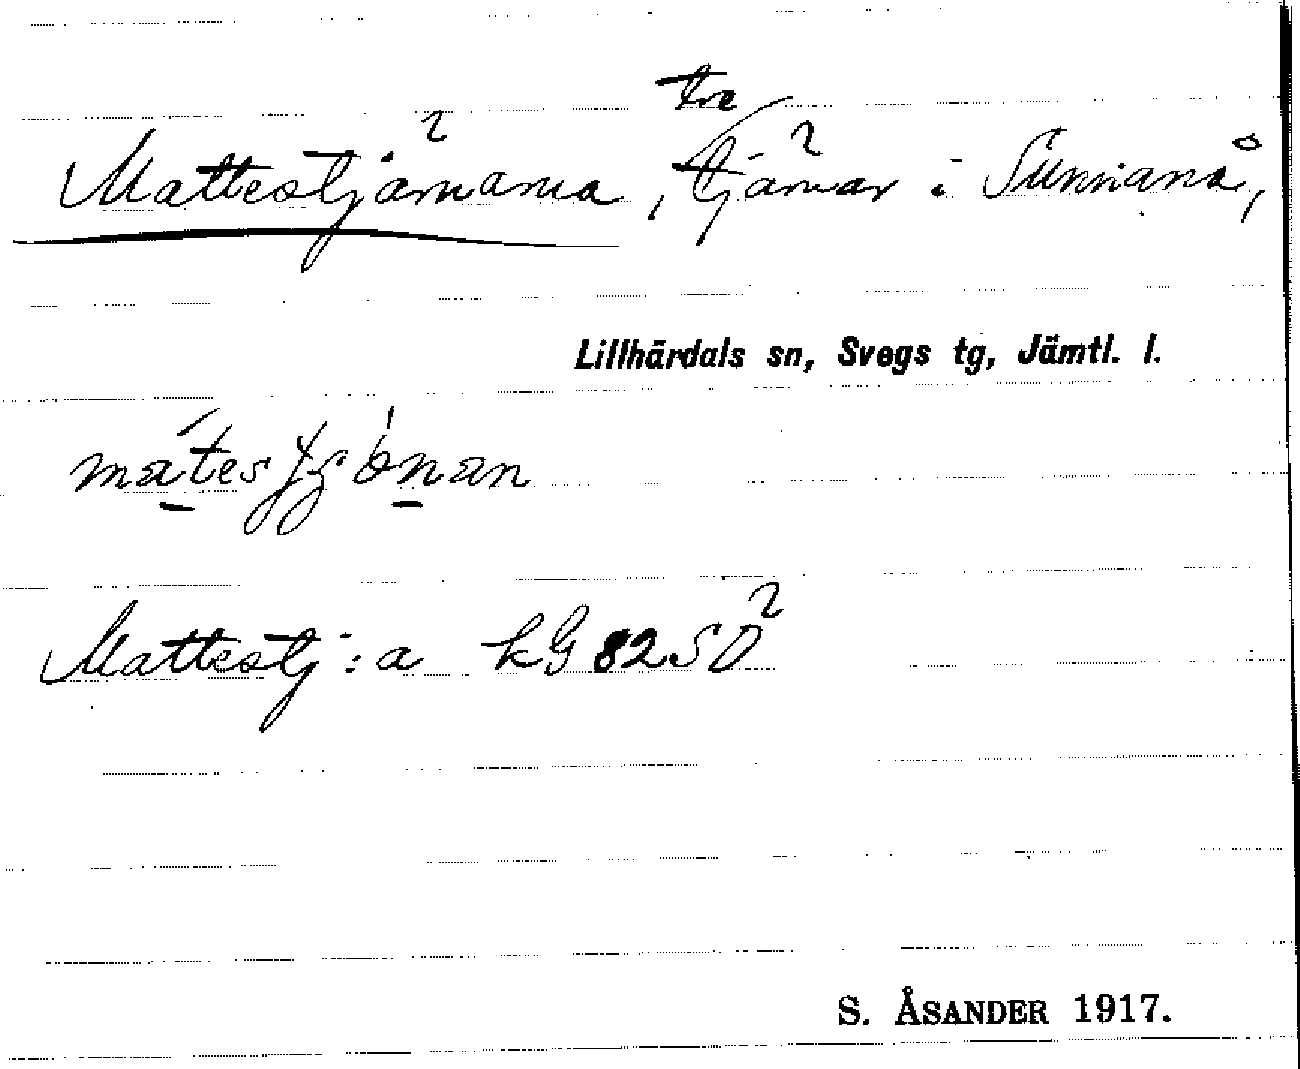 tre
Mattestjärnarna, tjärnar i Sunnanå,
Lillhärdals sn, Svegs tg, Jämtl. l.
Mattestj:a kG 82 SO
S. ÅSANDER 1917.